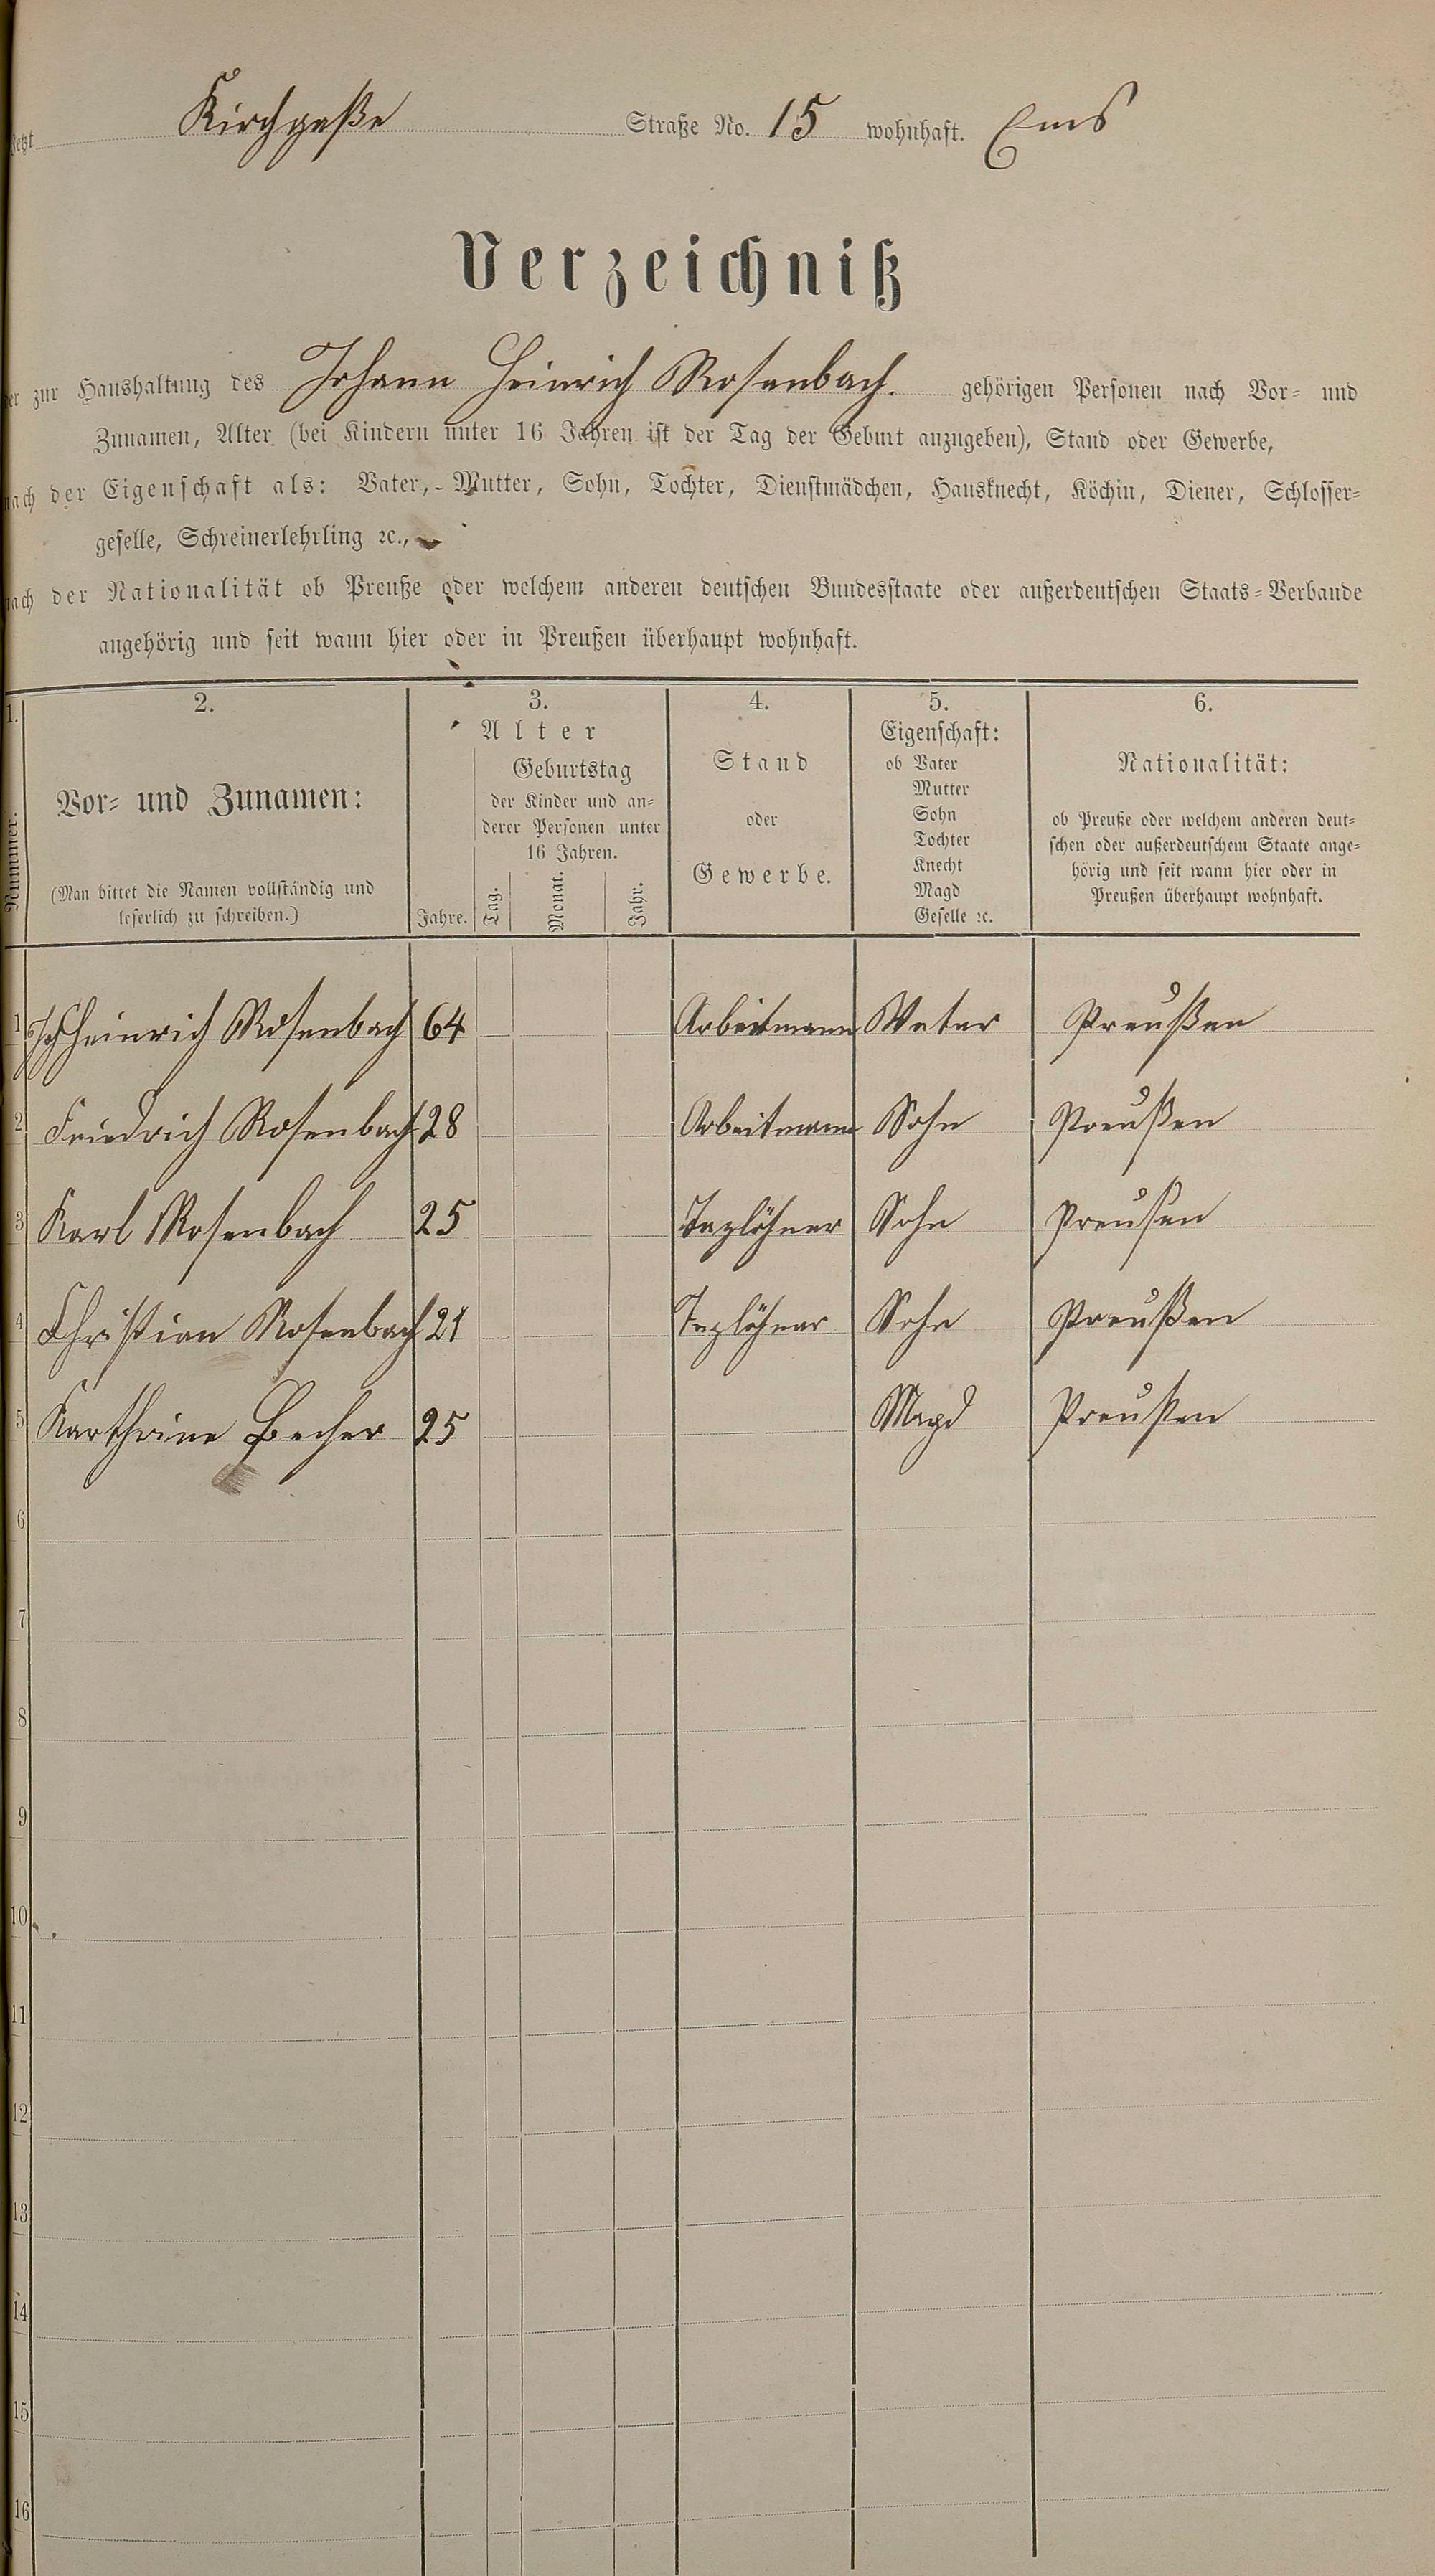 jetzt Kirchgaße Straße No. 15 wohnhaft. Ems
Verzeichniß
der zur Haushaltung des Johann Heinrich Rosenbach. gehörigen Personen nach Vor- und
Zunamen, Alter (bei Kindern unter 16 Jahren ist der Tag der Geburt anzugeben), Stand oder Gewerbe,
nach der Eigenschaft als: Vater, Mutter, Sohn, Tochter, Dienstmädchen, Hausknecht, Köchin, Diener, Schlosser-
geselle, Schreinerlehrling ꝛc.,
nach der Nationalität ob Preuße oder welchem anderen deutschen Bundesstaate oder außerdeutschen Staats-Verbande
angehörig und seit wann hier oder in Preußen überhaupt wohnhaft.
1. 2. 3. 4. 5. 6.
Nummer.
Vor- und Zunamen:
(Man bittet die Namen vollständig und
leserlich zu schreiben.)
Alter
Geburtstag
der Kinder und an-
derer Personen unter
16 Jahren.
Jahre. Tag. Monat. Jahr.
Stand
oder
Gewerbe.
Eigenschaft:
ob Vater
Mutter
Sohn
Tochter
Knecht
Magd
Geselle ꝛc.
Nationalität:
ob Preuße oder welchem anderen deut-
schen oder außerdeutschem Staate ange-
hörig und seit wann hier oder in
Preußen überhaupt wohnhaft.
1 Joh Heinrich Rosenbach 64 Arbeitmann Vater Preußen
2 Friedrich Rosenbach 28 Arbeitmann Sohn Preußen
3 Karl Rosenbach 25 Taglöhner Sohn Preusen
4 Christian Rosenbach 21 Taglöhner Sohn Preußen
5 Karthrine Becher 25 Magd Preußen
6
7
8
9
10
11
12
13
14
15
16